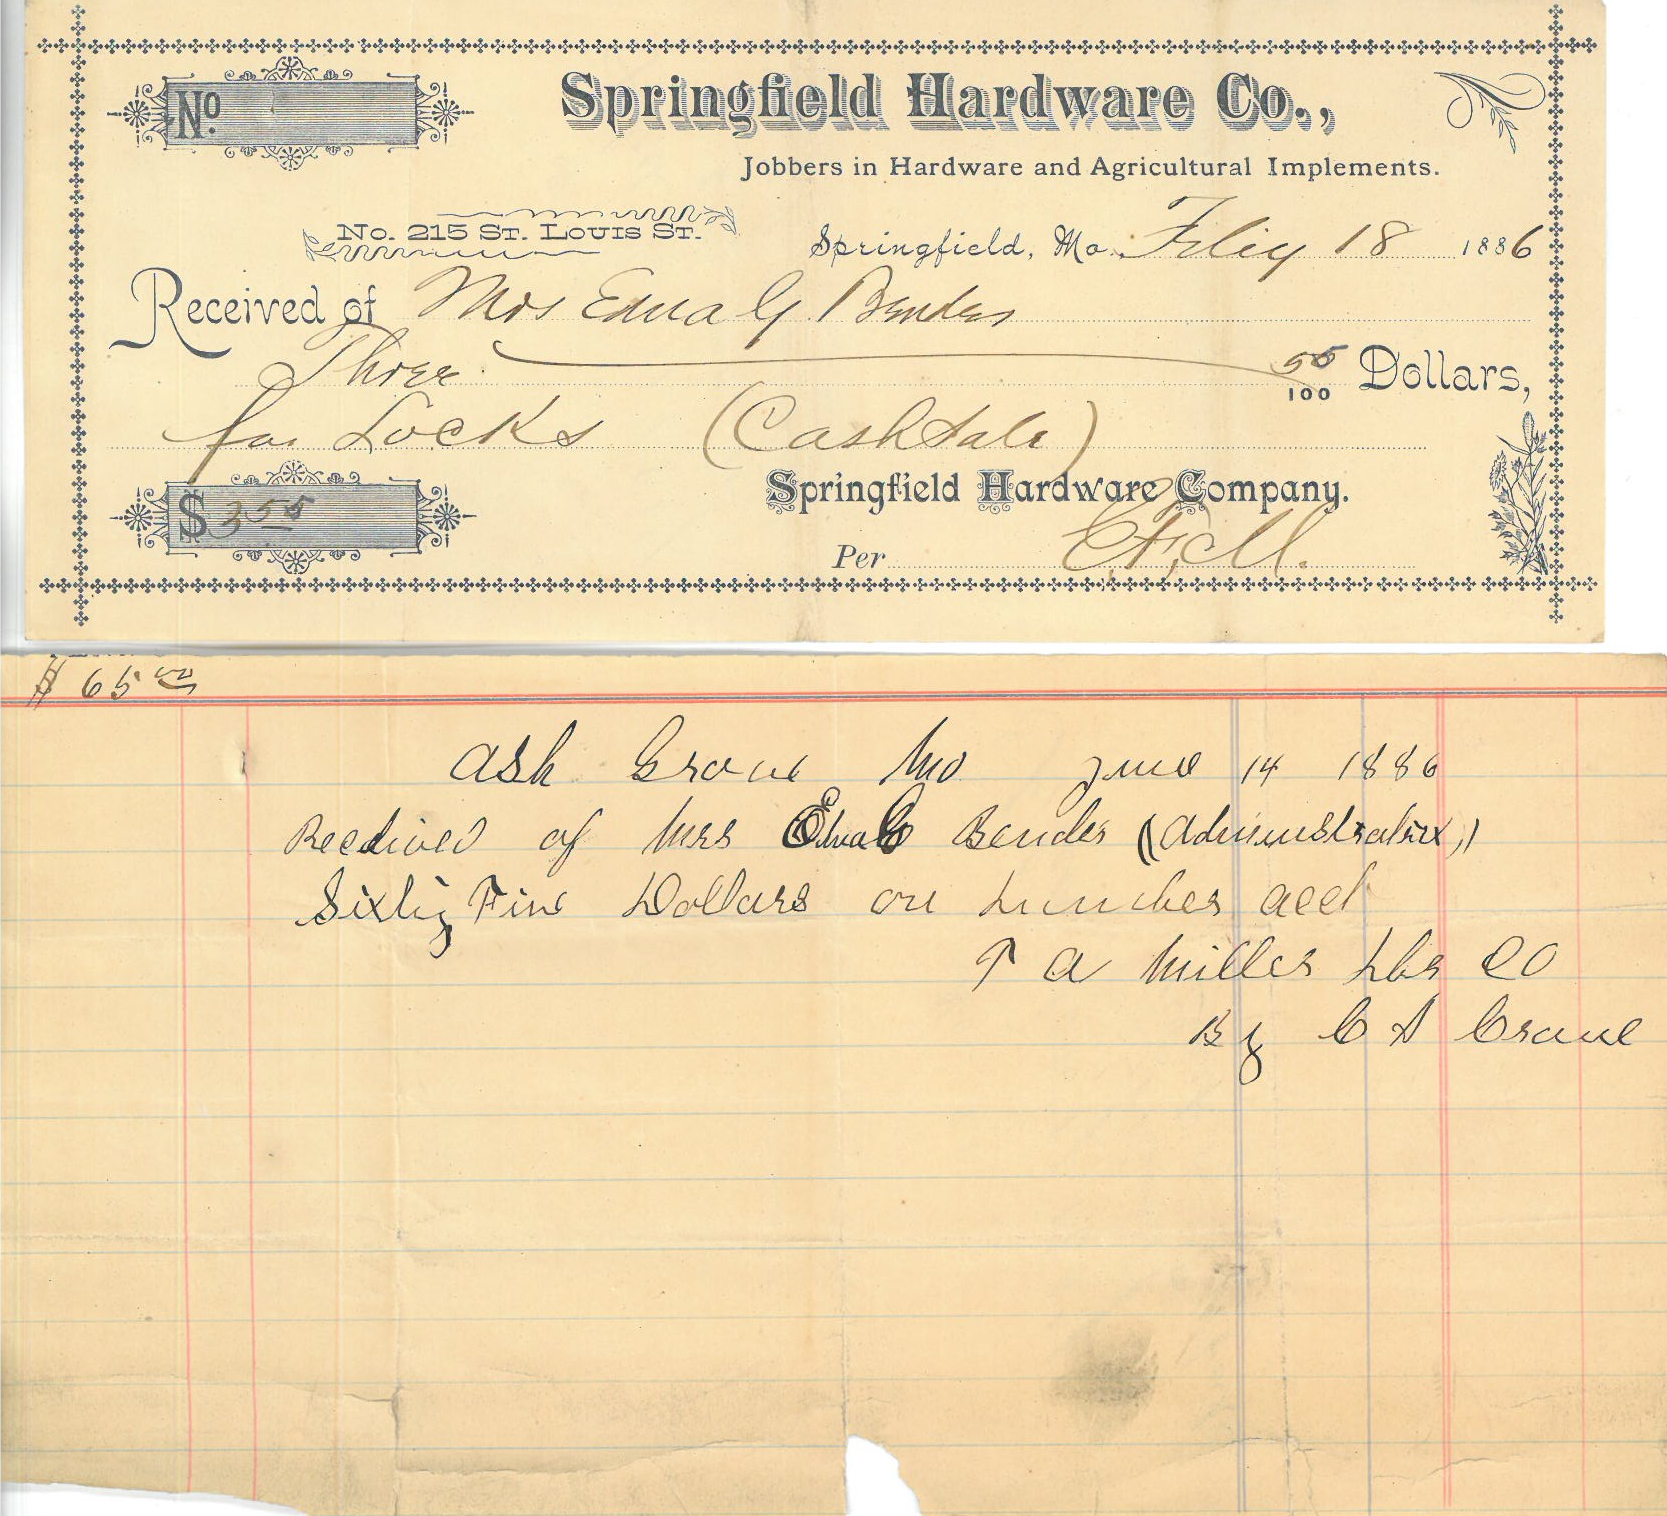 No.
Springfield Hardware Co.,
Jobbers in Hardware and Agricultural Implements.
No. 215 St. Louis St.
Springfield, Mo. Feby 18 1886
Received of Mrs Edna G. Bender
Three 55/100 Dollars,
for Locks (Cash Sale)
Springfield Hardware Company.
$ 3.55
Per
$ 65 00
Ash Grove Mo June 14 1886
Received of Mrs Edna G Bender (Administratrix,)
Sixty Five Dollars on Lumber acct
T A Miller Lbr Co
By C A Crane